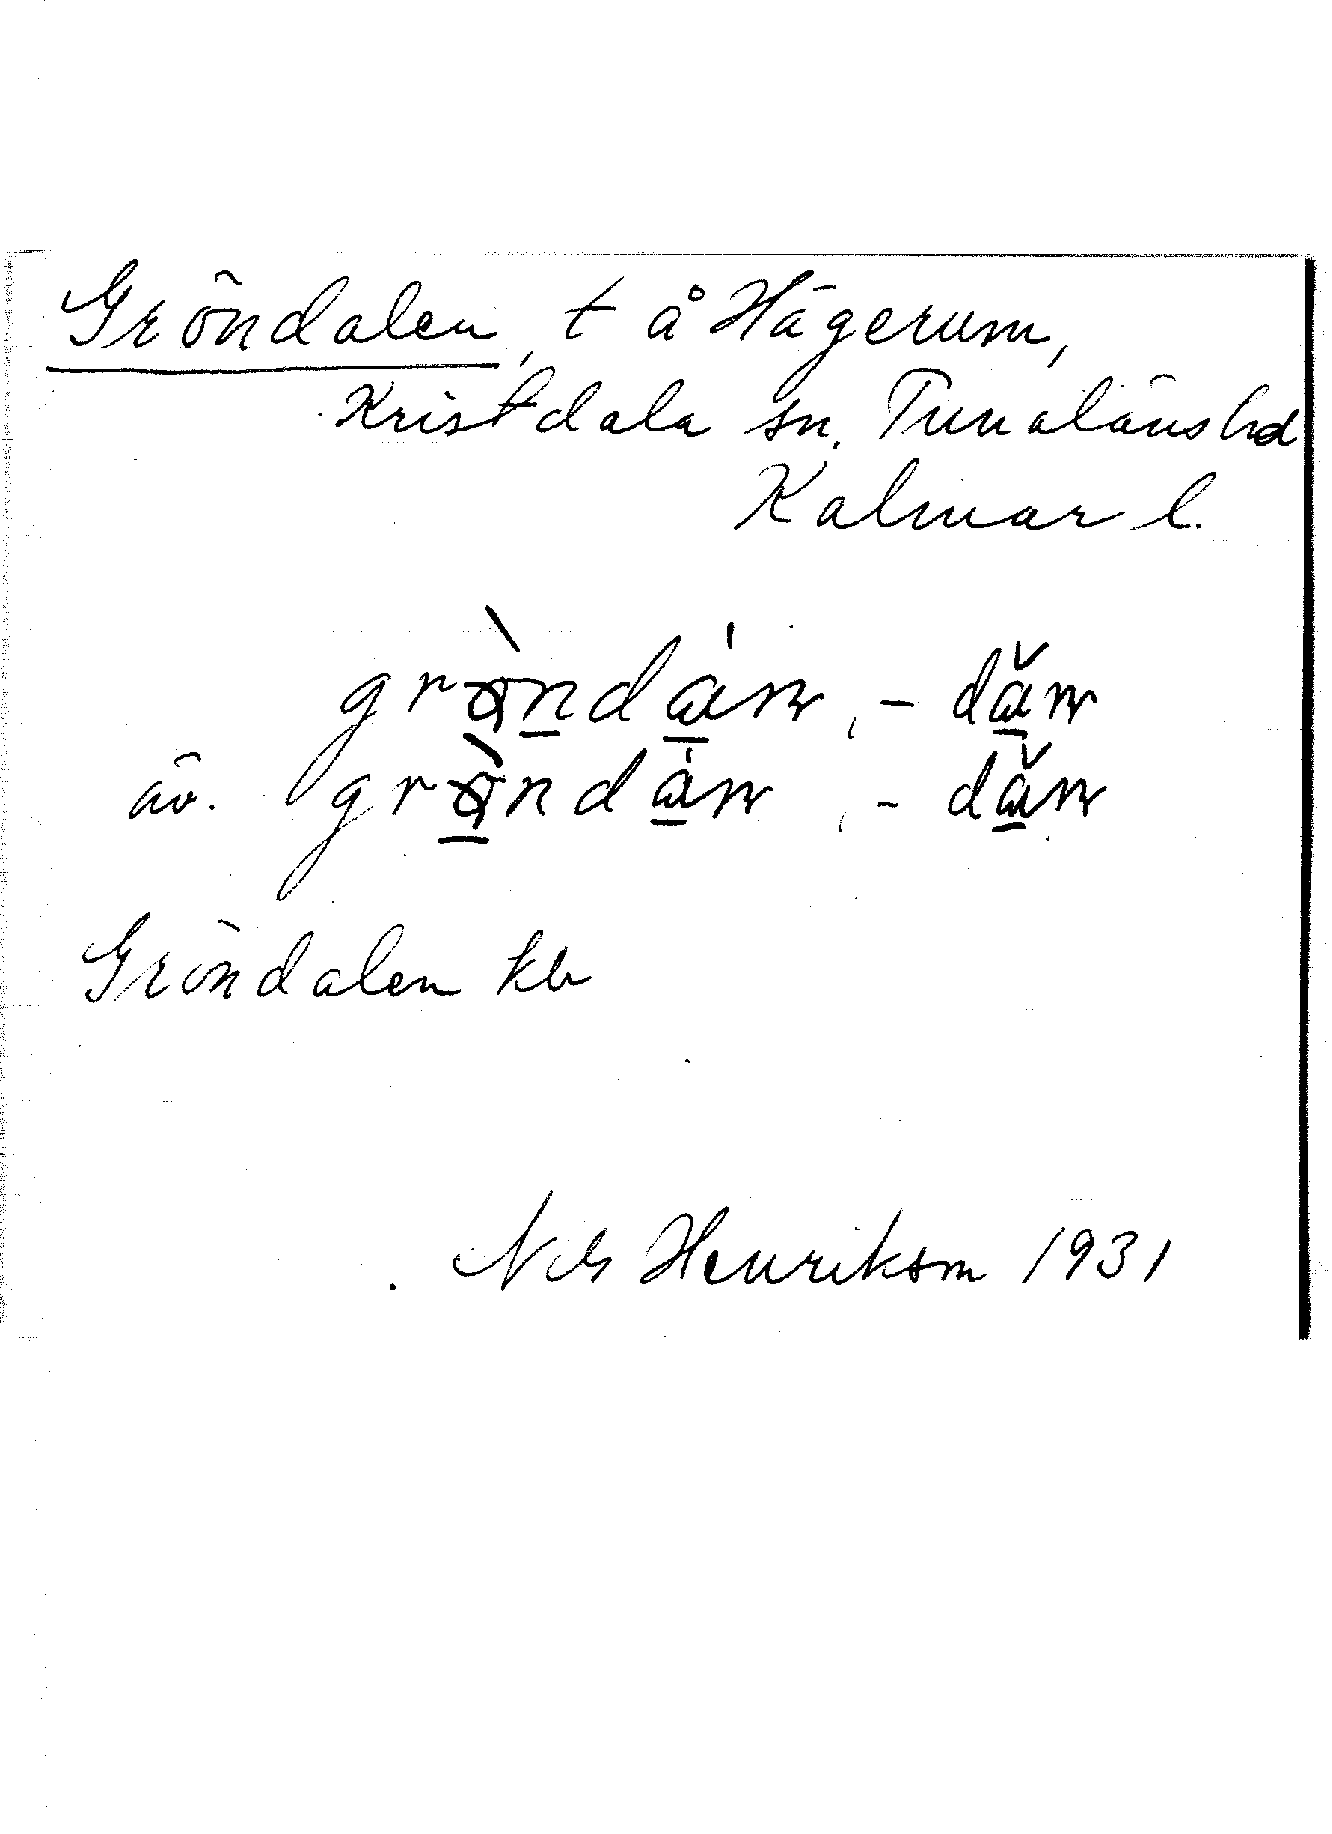 Gröndalen, t å Hägerum,
Kristdala sn. Tunaläns hd
Kalmar l.
grø̀ndán, -dăn
äv. grø̀ndán, -dăn
Gröndalen kb
Nils Henrikson 1931